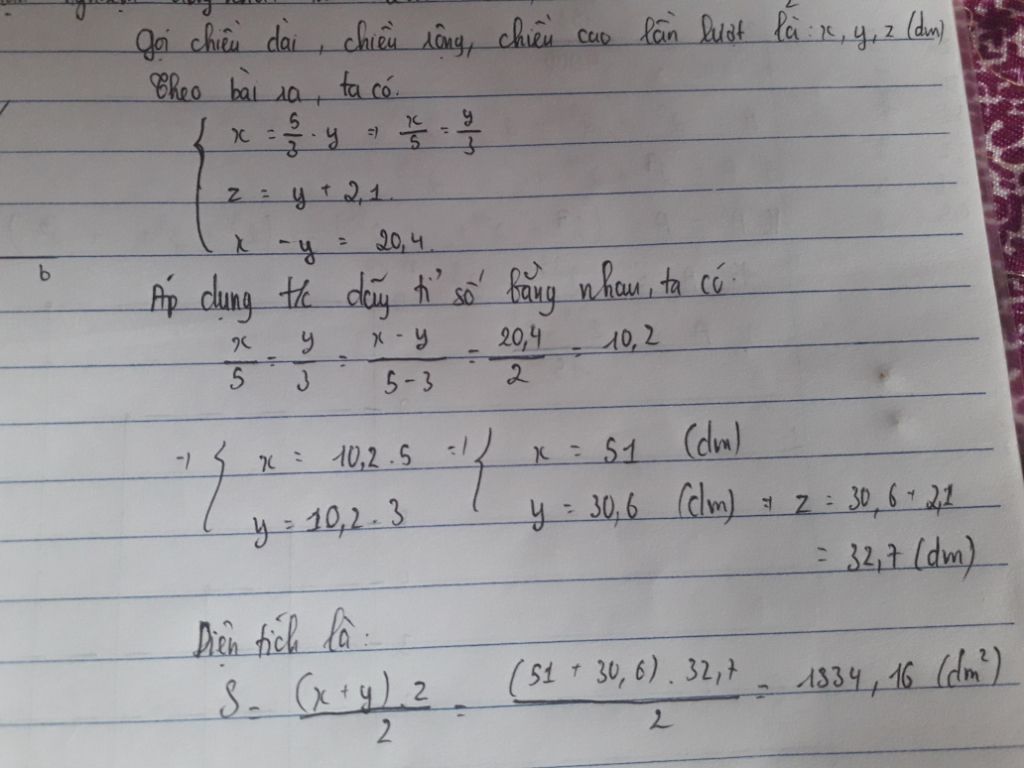 gọi chiều dài, chiều rộng, chiều cao lần lượt là: x, y, z (dm)
Theo bài ra, ta có.
x = 5/3 . y => x/5 = y/3
z = y + 2,1.
x - y = 20,4.
b
Áp dụng t/c dãy tỉ số bằng nhau, ta có.
x/5 = y/3 = (x - y)/(5 - 3) = 20,4/2 = 10,2
=> { x = 10,2 . 5 => { x = 51 (dm)
y = 10,2 . 3 y = 30,6 (dm) => z = 30,6 + 2,1
= 32,7 (dm)
Diện tích là:
S = (x + y) . z / 2 = (51 + 30,6) . 32,7 / 2 = 1334,16 (dm²)